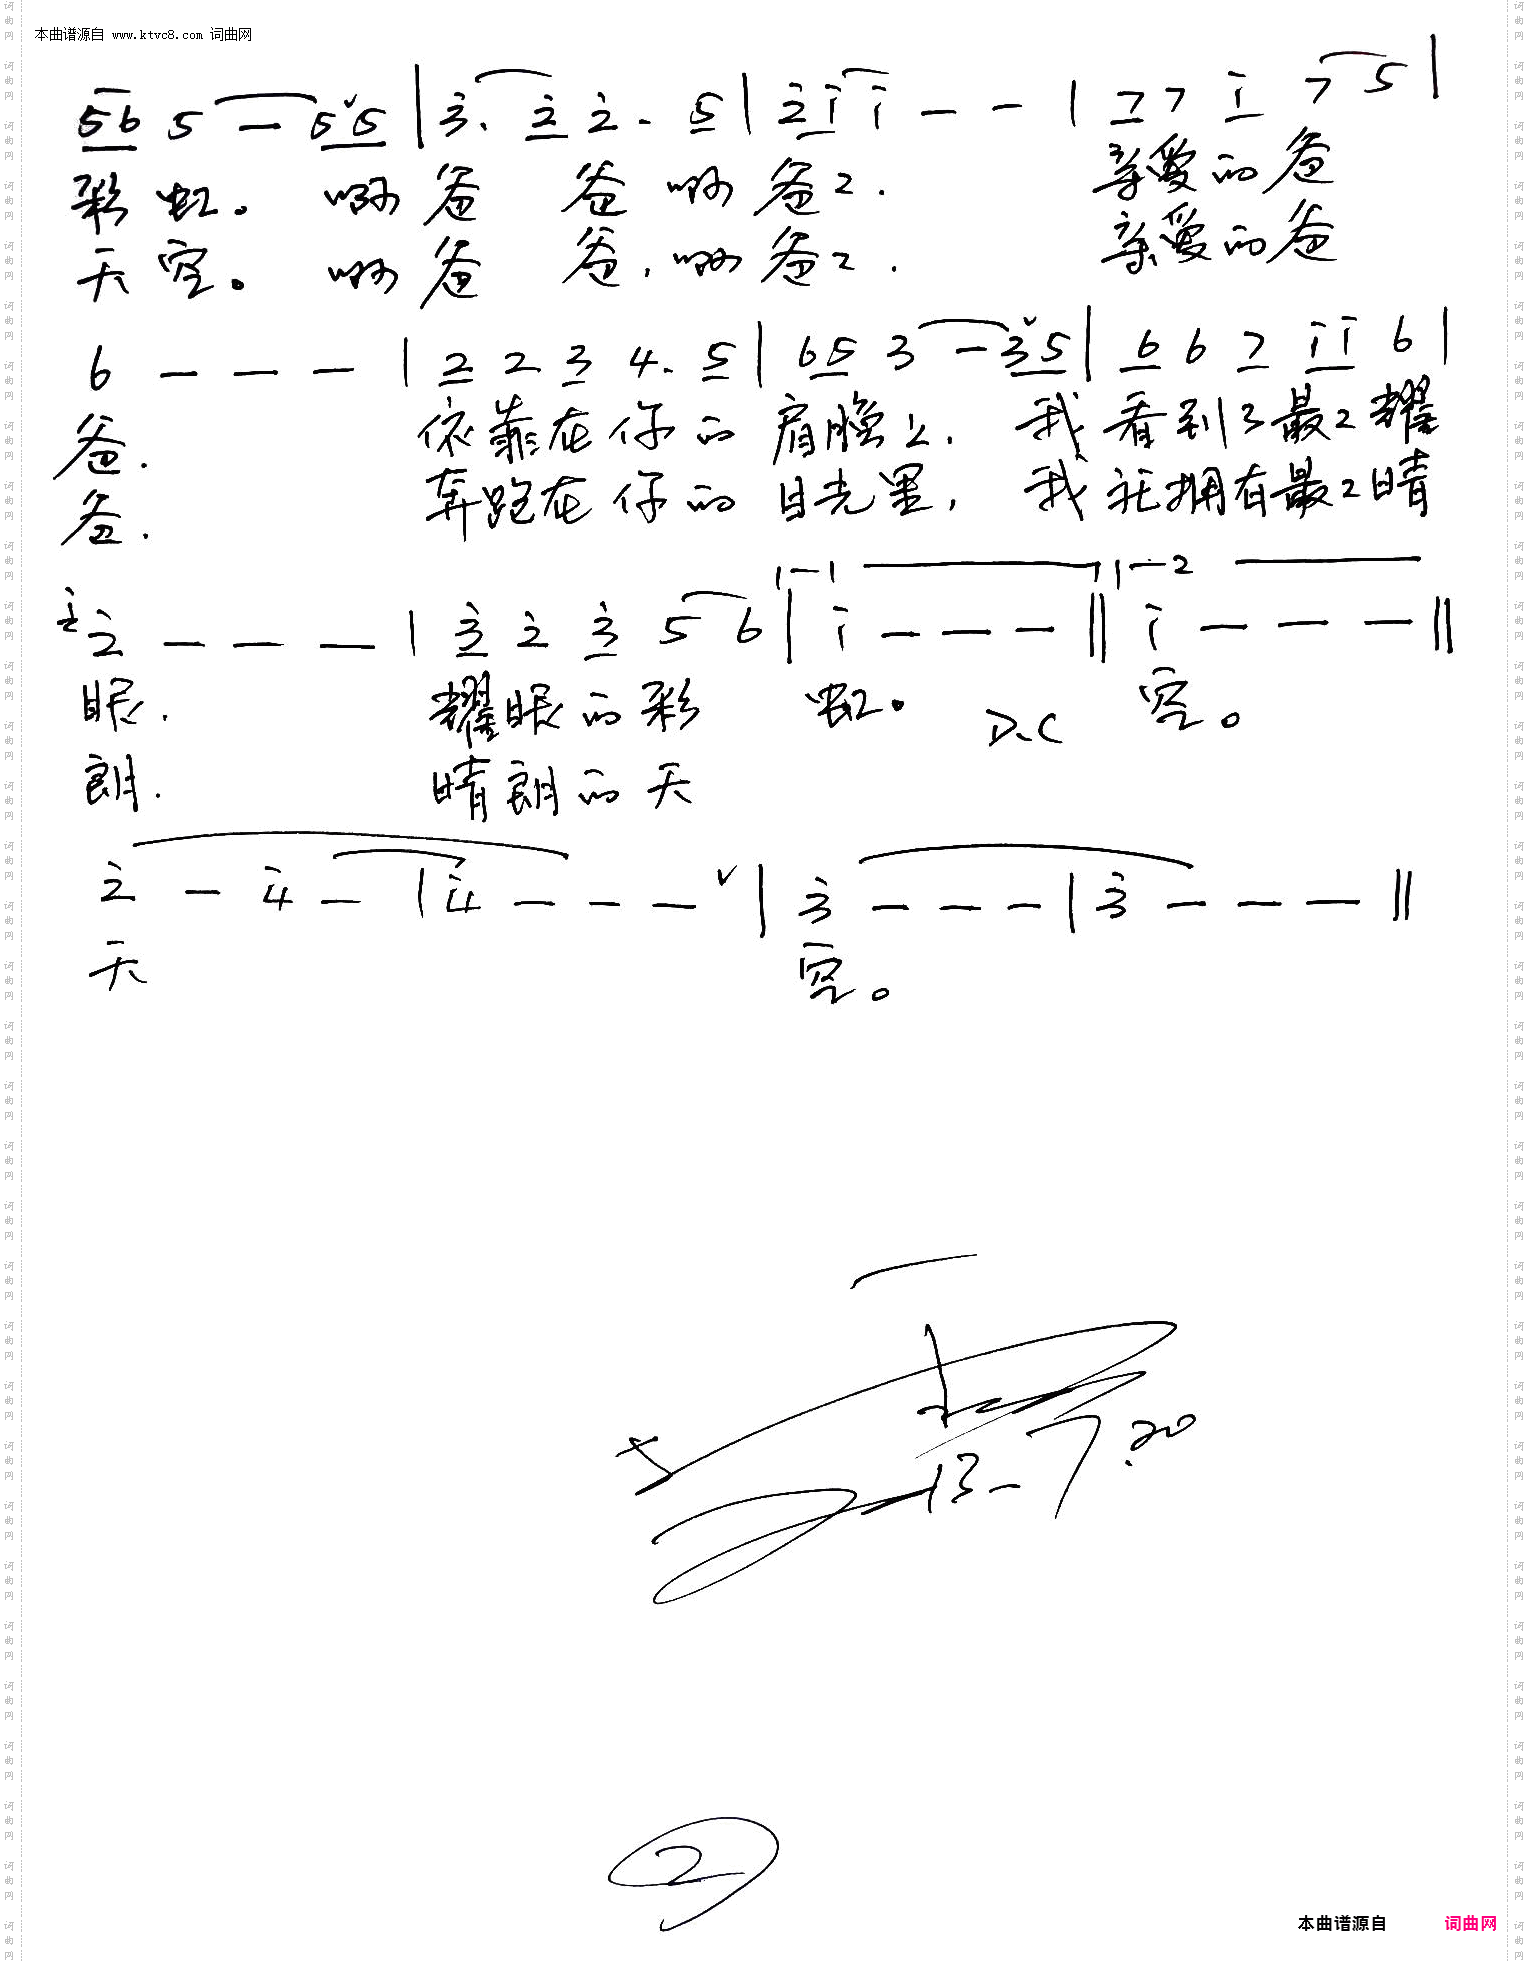 本曲谱源自 www.ktvc8.com 词曲网
56 5 — 5 5 | 3. 2 2. 5 | 2 1 1 — — | 7 7 1 7 5 |
彩虹。 啊爸 爸 啊爸2. 亲爱的爸
天空。 啊爸 爸,啊爸2. 亲爱的爸
6 — — — | 2 2 3 4. 5 | 65 3 — 3 5 | 6 6 7 1 1 6 |
爸. 依靠在你的肩膀上. 我看到了最2耀
爸. 奔跑在你的目光里, 我在拥有最2晴
2 — — — | 3 2 3 5 6 | 1 — — — || 1 — — — ||
眼. 耀眼的彩 虹。 D.C 空。
朗. 晴朗的天
2 — 4 — | 4 — — — | 3 — — — | 3 — — — ||
天 空。
13-7.20
2
本曲谱源自 词曲网